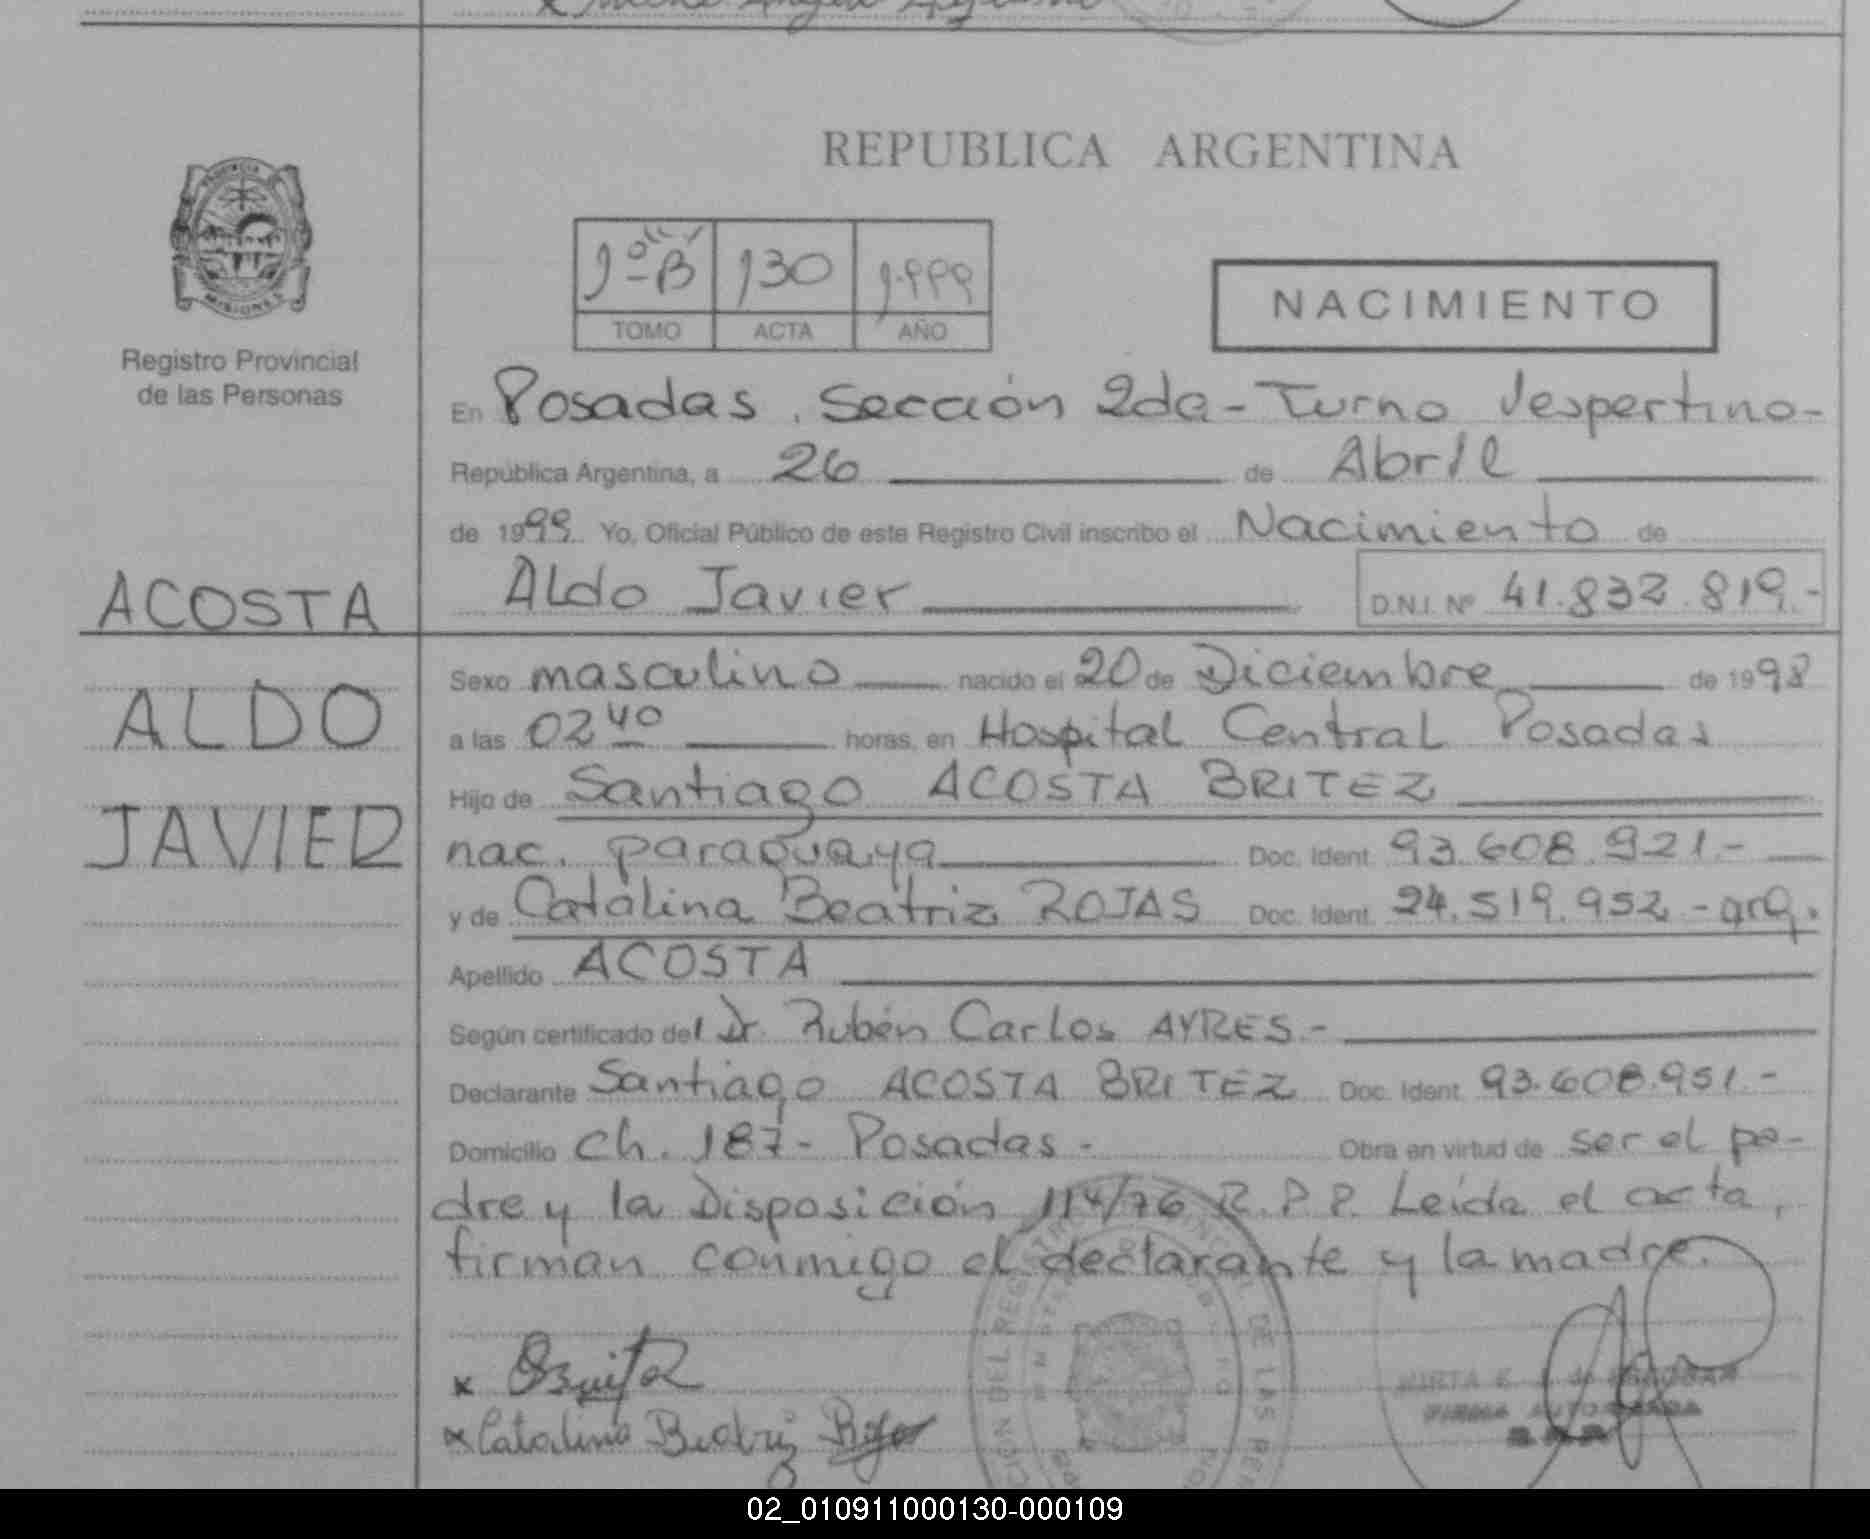 REPUBLICA ARGENTINA
PROVINCIA
MISIONES
Registro Provincial
de las Personas
1º "B" 130 1.999
TOMO ACTA AÑO
NACIMIENTO
En Posadas, Sección 2da - Turno Vespertino-
República Argentina, a 26 de Abril
de 1999. Yo, Oficial Público de este Registro Civil inscribo el Nacimiento de
Aldo Javier D.N.I. Nº 41.832.819.-
ACOSTA
ALDO
JAVIER
Sexo masculino nacido el 20 de Diciembre de 1998
a las 02 40 horas, en Hospital Central Posadas
Hijo de Santiago ACOSTA BRITEZ
nac. paraguaya Doc. Ident. 93.608.921.-
y de Catalina Beatriz ROJAS Doc. Ident. 24.519.952.- arg.
Apellido ACOSTA
Según certificado del Dr. Rubén Carlos AYRES.-
Declarante Santiago ACOSTA BRITEZ Doc. Ident. 93.608.951.-
Domicilio Ch. 187- Posadas - Obra en virtud de ser el pa-
dre y la Disposición 114/76 R.P.P. Leída el acta,
firman conmigo el declarante y la madre.
x
x Catalina Beatriz Rojas
FIRMA AUTORIZADA
02_010911000130-000109